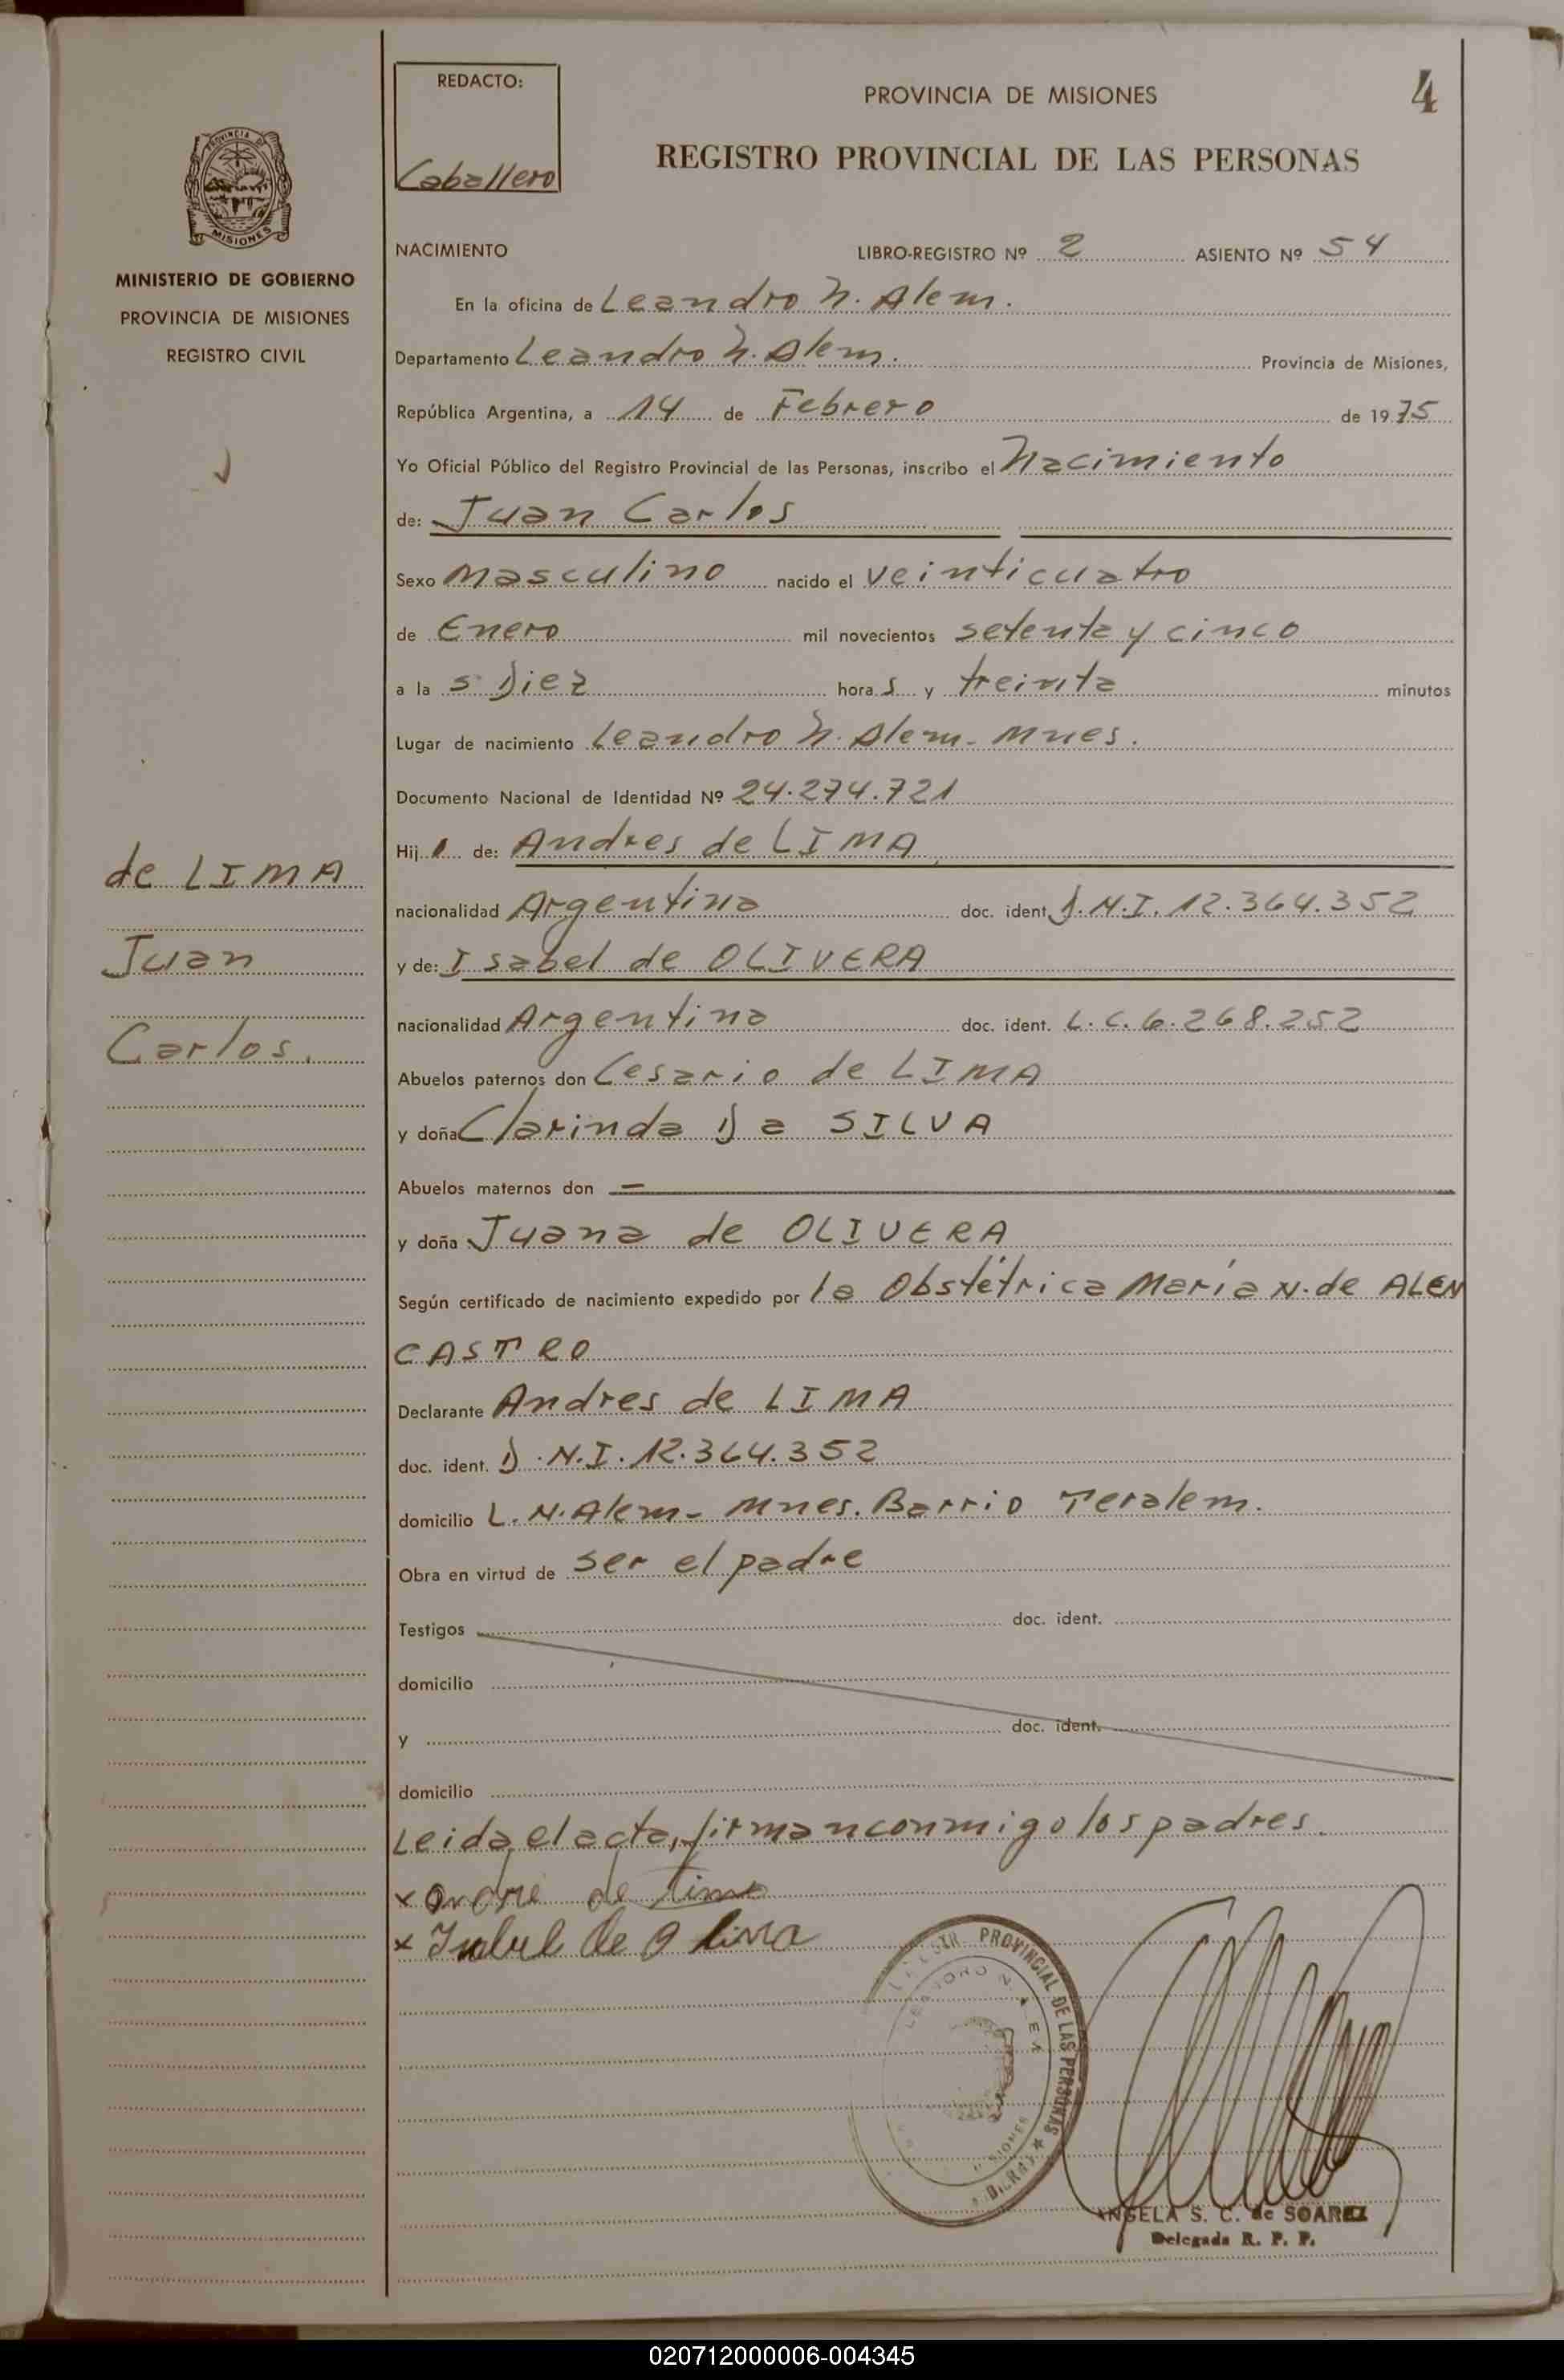 REDACTO:
Caballero
PROVINCIA DE MISIONES
4
REGISTRO PROVINCIAL DE LAS PERSONAS
PROVINCIA DE
MISIONES
MINISTERIO DE GOBIERNO
PROVINCIA DE MISIONES
REGISTRO CIVIL
de LIMA
Juan
Carlos.
NACIMIENTO LIBRO-REGISTRO Nº 2 ASIENTO Nº 54
En la oficina de Leandro N. Alem.
Departamento Leandro N. Alem. Provincia de Misiones,
República Argentina, a 14 de Febrero de 1975
Yo Oficial Público del Registro Provincial de las Personas, inscribo el Nacimiento
de: Juan Carlos
Sexo Masculino nacido el veinticuatro
de Enero mil novecientos setenta y cinco
a la s Diez hora s y treinta minutos
Lugar de nacimiento Leandro N. Alem - Mnes.
Documento Nacional de Identidad Nº 24.274.721
Hij o de: Andres de LIMA
nacionalidad Argentina doc. ident. D.N.I. 12.364.352
y de: Isabel de OLIVERA
nacionalidad Argentina doc. ident. L.C. 6.268.252
Abuelos paternos don Cesario de LIMA
y doña Clarinda Da SILVA
Abuelos maternos don —
y doña Juana de OLIVERA
Según certificado de nacimiento expedido por la Obstétrica María N. de ALEN
CASTRO
Declarante Andres de LIMA
doc. ident. D.N.I. 12.364.352
domicilio L.N. Alem - Mnes. Barrio Teralem.
Obra en virtud de ser el padre
Testigos doc. ident.
domicilio
y doc. ident.
domicilio
Leida el acta, firman conmigo los padres.
x Andre de Lima
x Isabel de Olivra
PROVINCIAL DE LAS PERSONAS
LEANDRO N. ALEM
MISIONES
ANGELA S. C. de SOAREZ
Delegada R. P. P.
020712000006-004345